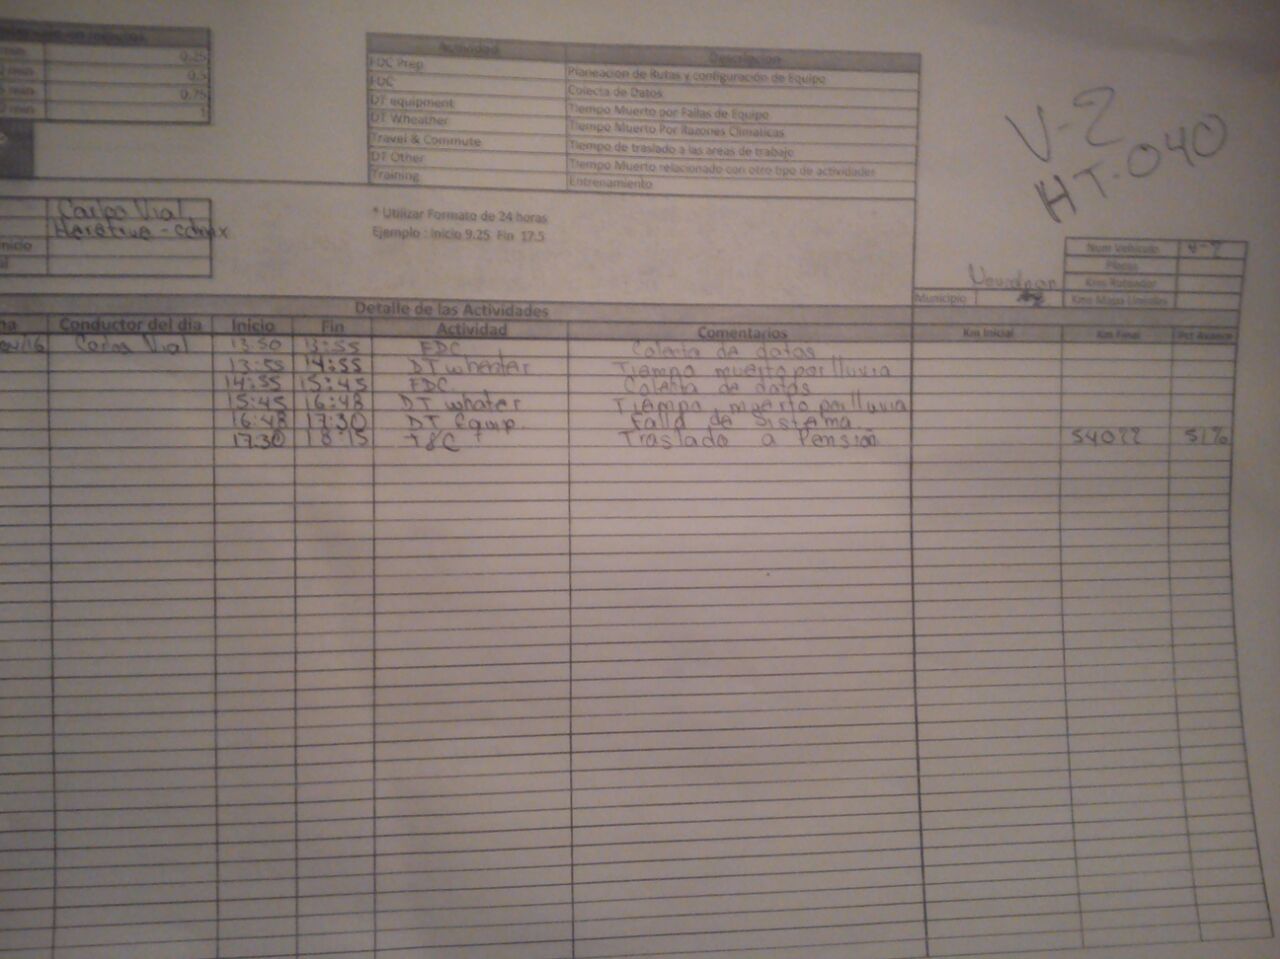 0.25
0.5
0.75
1
Actividad Descripcion
FDC Prep Planeacion de Rutas y configuración de Equipo
FDC Colecta de Datos
DT equipment Tiempo Muerto por Fallas de Equipo
DT Wheather Tiempo Muerto Por Razones Climaticas
Travel & Commute Tiempo de traslado a las areas de trabajo
DT Other Tiempo Muerto relacionado con otro tipo de actividades
Training Entrenamiento
V-2
HT-040
Carlos Vial
* Utilizar Formato de 24 horas
Ejemplo : Inicio 9.25 Fin 17.5
Num Vehiculo
Placas
Municipio
Detalle de las Actividades
Conductor del dia Inicio Fin Actividad Comentarios Km Inicial Km Final Pct Avance
Carlos Vial 13:50 13:55 FDC Colecta de datos
13:55 14:55 DT wheater Tiempo muerto por lluvia
14:55 15:45 FDC Colecta de datos
15:45 16:48 DT whater Tiempo muerto por lluvia
16:48 17:30 DT Equip. Falla de Sistema
17:30 18:15 T&C Traslado a Pensión 54077 51%